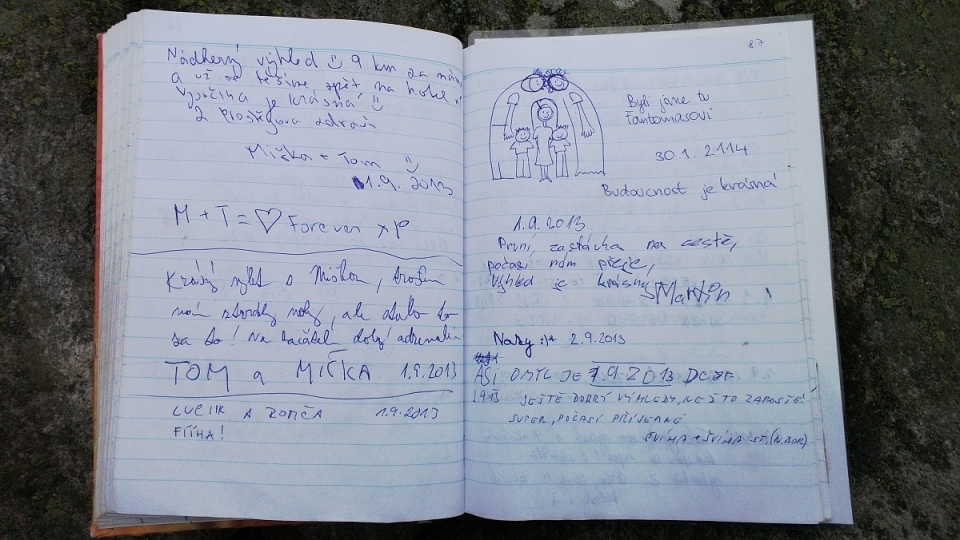 Nádherný výhled :) 9 km za námi
a už se těšíme zpět na hotel
Vysočina je krásná :)
Miška + Tom :)
1.9. 2013
M + T = ♡ Forever xP
Krásný výlet s Miškou, trochu
nám ztvrdly nohy, ale stálo to
za to! Na začátek dobrý adrenalin
TOM a MIŠKA 1.9.2013
LUCIK A 1.9.2013
FÍÍHA!
87
Byli jsme tu
Fantomasovi
30 1. 2114
Budoucnost je krásná
1.9.2013
První zastávka na cestě,
počasí nám přeje,
Výhled je krásný Martin
Naky :)* 2.9.2013
ASI OMYL JE 1.9.2013
1.9.13 JEŠTĚ DOBRÝ VÝHLEDY, NEŽ TO ZAROSTE!
SUPER, POČASÍ PŘÍJEMNÉ
ŠVÍHA + ŠVÍHA ST.